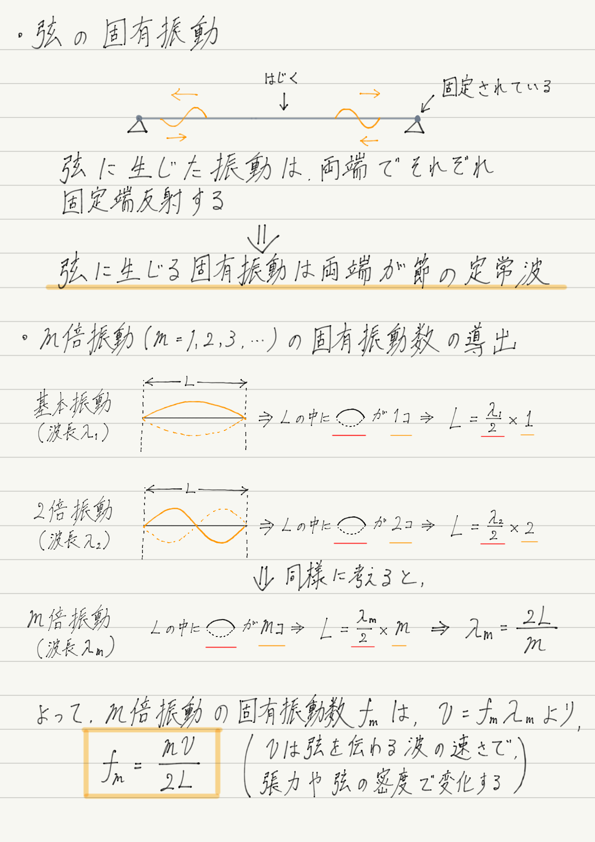 ・弦の固有振動
はじく
固定されている
弦に生じた振動は、両端でそれぞれ
固定端反射する
⇓
弦に生じる固有振動は両端が節の定常波
・m倍振動(m=1,2,3,…)の固有振動数の導出
基本振動
(波長λ₁)
L
⇒ Lの中に が1コ ⇒ L = λ₁/2 × 1
2倍振動
(波長λ₂)
L
⇒ Lの中に が2コ ⇒ L = λ₂/2 × 2
⇓ 同様に考えると,
m倍振動
(波長λm)
Lの中に がmコ ⇒ L = λm/2 × m ⇒ λm = 2L/m
よって、m倍振動の固有振動数fmは, v=fmλmより,
fm = mv/2L
(vは弦を伝わる波の速さで,
張力や弦の密度で変化する)